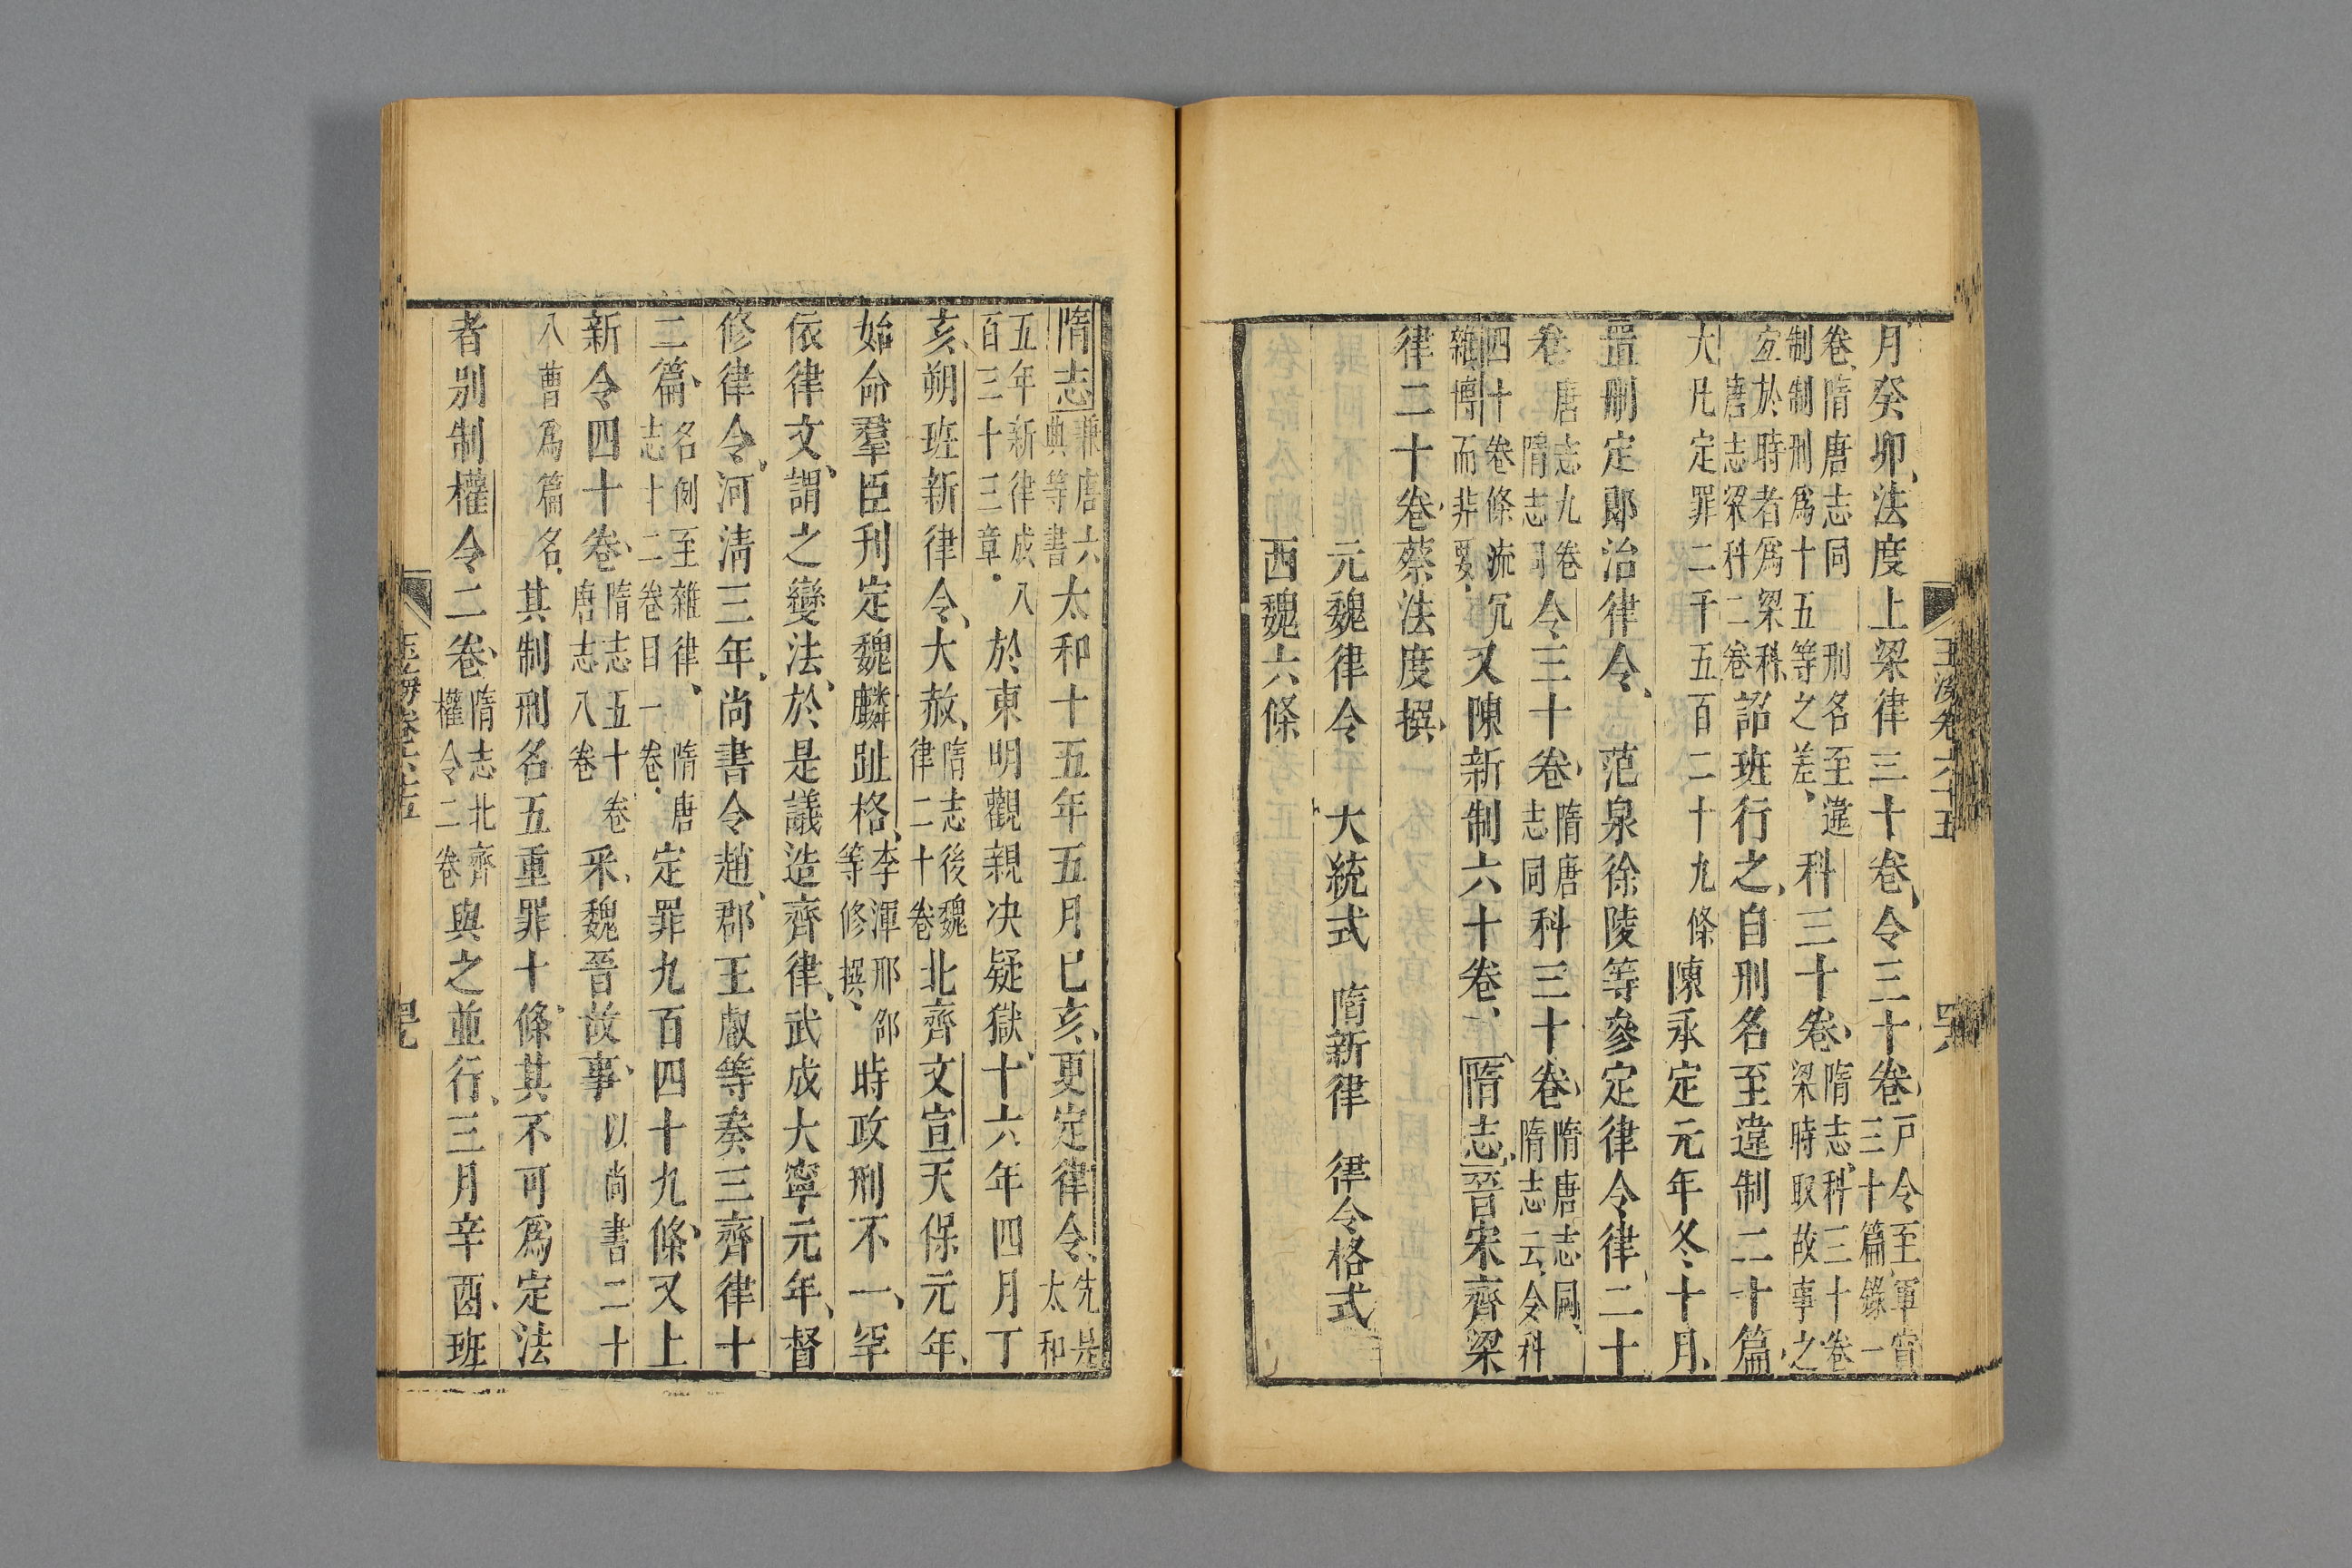 月癸卯法度上梁律三十卷令三十卷戶令至軍賞三十篇錄一
卷隋唐志同刑名至違制制刑爲十五等之差科三十卷隋志科三十卷梁時取故事之
宜於時者爲梁科唐志梁科二卷詔班行之自刑名至違制二十篇
大凡定罪二千五百二十九條陳承定元年冬十月
置刪定郞治律令范泉徐陵等參定律令律二十
卷唐志九卷隋志同令三十卷隋唐志同科三十卷隋唐志同隋志云令科
四十卷條流冗雜博而非要又陳新制六十卷隋志晉宋齊梁
律二十卷蔡法度撰
元魏律令 大統式 隋新律 律令格式
西魏六條
玉海卷六十五
隋志兼唐六典等書太和十五年五月己亥更定律令先是太和
五年新律成八百三十三章於東明觀親決疑獄十六年四月丁
亥朔班新律令大赦隋志後魏律二十卷北齊文宣天保元年
始命羣臣刊定魏麟趾格李渾邢邵等修撰時政刑不一罕
依律文謂之變法於是議造齊律武成大寧元年督
修律令河淸三年尚書令趙郡王叡等奏三齊律十
二篇名例至雜律志十二卷目一卷隋唐定罪九百四十九條又上
新令四十卷隋志五十卷唐志八卷采魏晉故事以尚書二十
八曹爲篇名其制刑名五重罪十條其不可爲定法
者別制權令二卷隋志北齊權令二卷與之並行三月辛酉班
玉海卷六十五